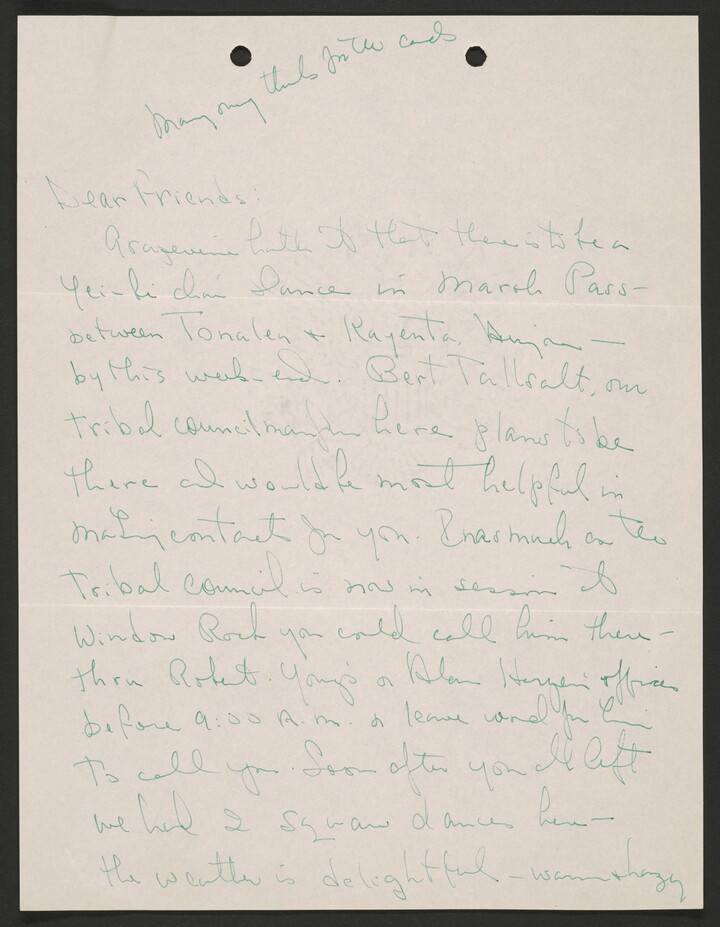 Many many thanks for the cards
Dear Friends:
Grapevine hath it that there is to be a
Yei-bi chai Dance in Marsh Pass-
between Tonalea & Kayenta.
by this week-end. Bert Tallsalt, our
tribal councilman from here plans to be
there and would be most helpful in
making contacts for you. Inasmuch as the
tribal council is now in session at
Window Rock you could call him there-
thru Robert Young's or Alan offices
before 9:00 A.M. or leave word for him
to call you. Soon after you all left
we had 2 Squaw dances here-
the weather is delightful - warm & hazy